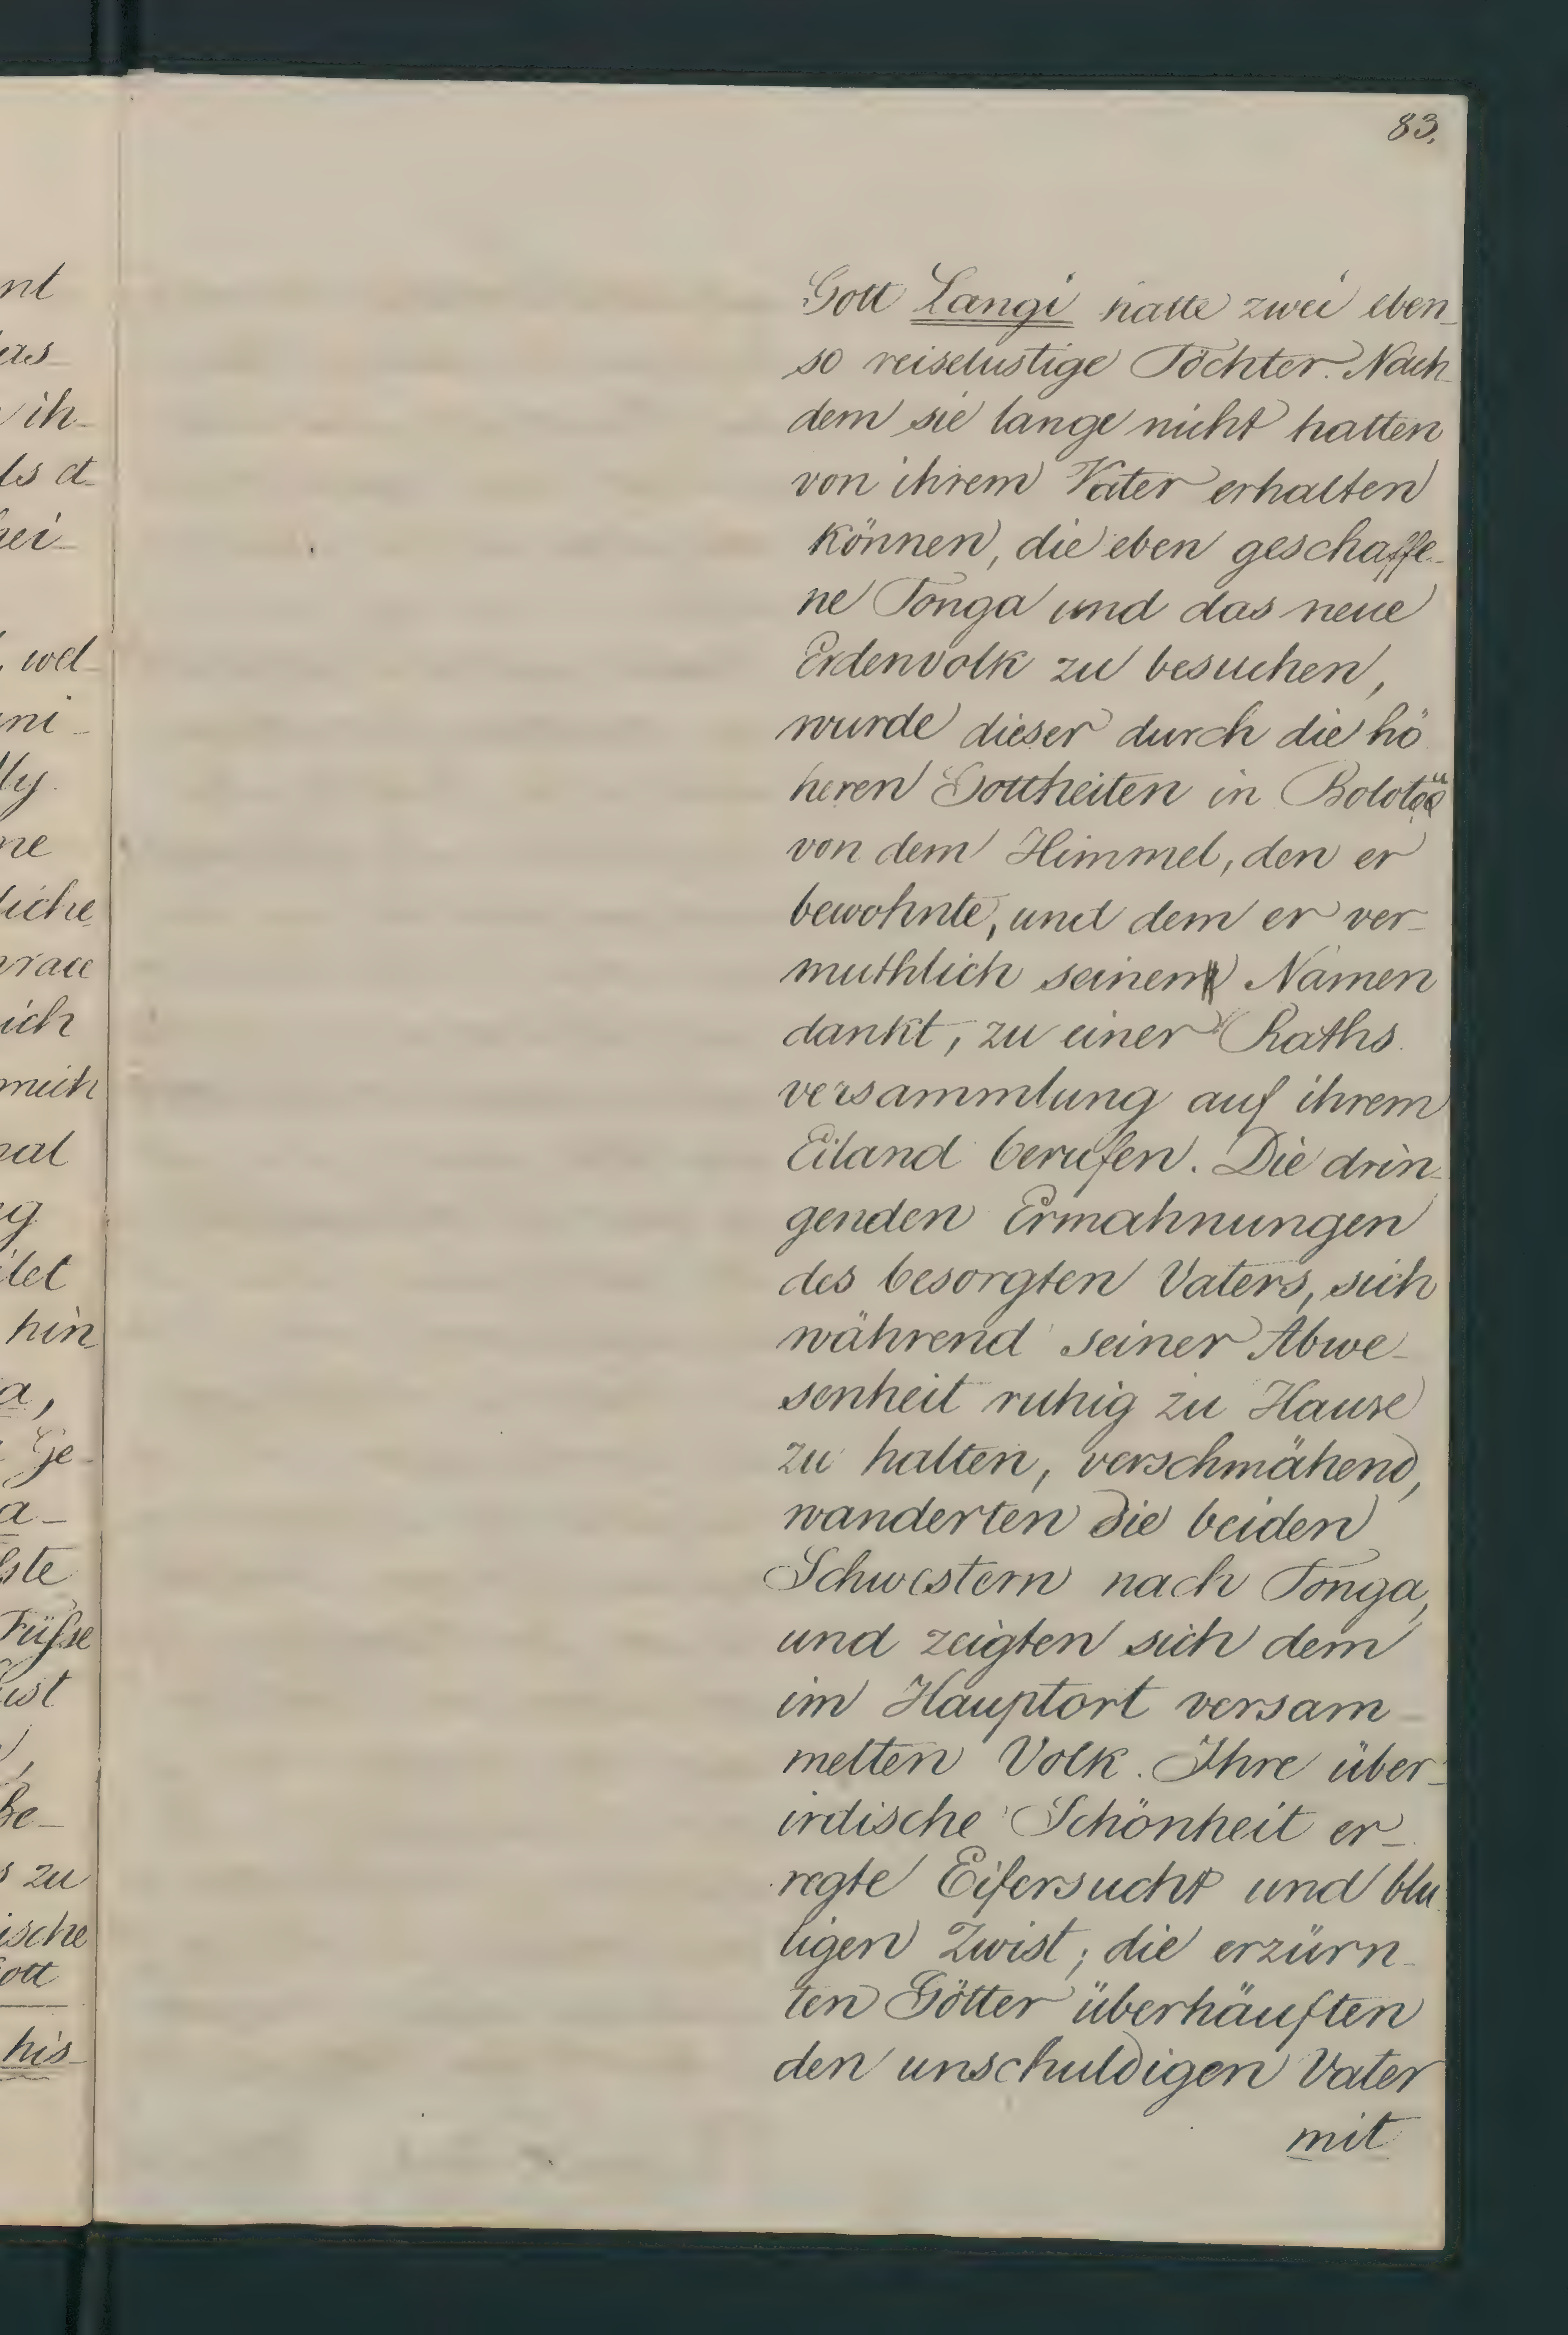 nt
as-
ih-
ls d-
ei-
wel-
ni-
lly
ne
liche
race
ich
mich
al
g
det
hin
a,
Ge-
a-
ste
Füße
ust
Be-
s zu
ische
ott
his-
83.
Gott Langi hatte zwei eben-
so reiselustige Töchter. Nach-
dem sie lange nicht hatten
von ihrem Vater erhalten
können, die eben geschaffe-
ne Tonga und das neue
Erdenvolk zu besuchen,
wurde dieser durch die hö
heren Gottheiten in
von dem Himmel, den er
bewohnte, und dem er ver-
muthlich seinen Namen
dankt, zu einer Raths
versammlung auf ihrem
Eiland berufen. Die drin-
genden Ermahnungen
des besorgten Vaters, sich
während seiner Abwe-
senheit ruhig zu Hause
zu halten, verschmähend,
wanderten die beiden
Schwestern nach Tonga,
und zeigten sich dem
im Hauptort versam-
melten Volk. Ihre über-
irdische Schönheit er-
regte Eifersucht und blu
tigen Zwist; die erzürn-
ten Götter überhäuften
den unschuldigen Vater
mit